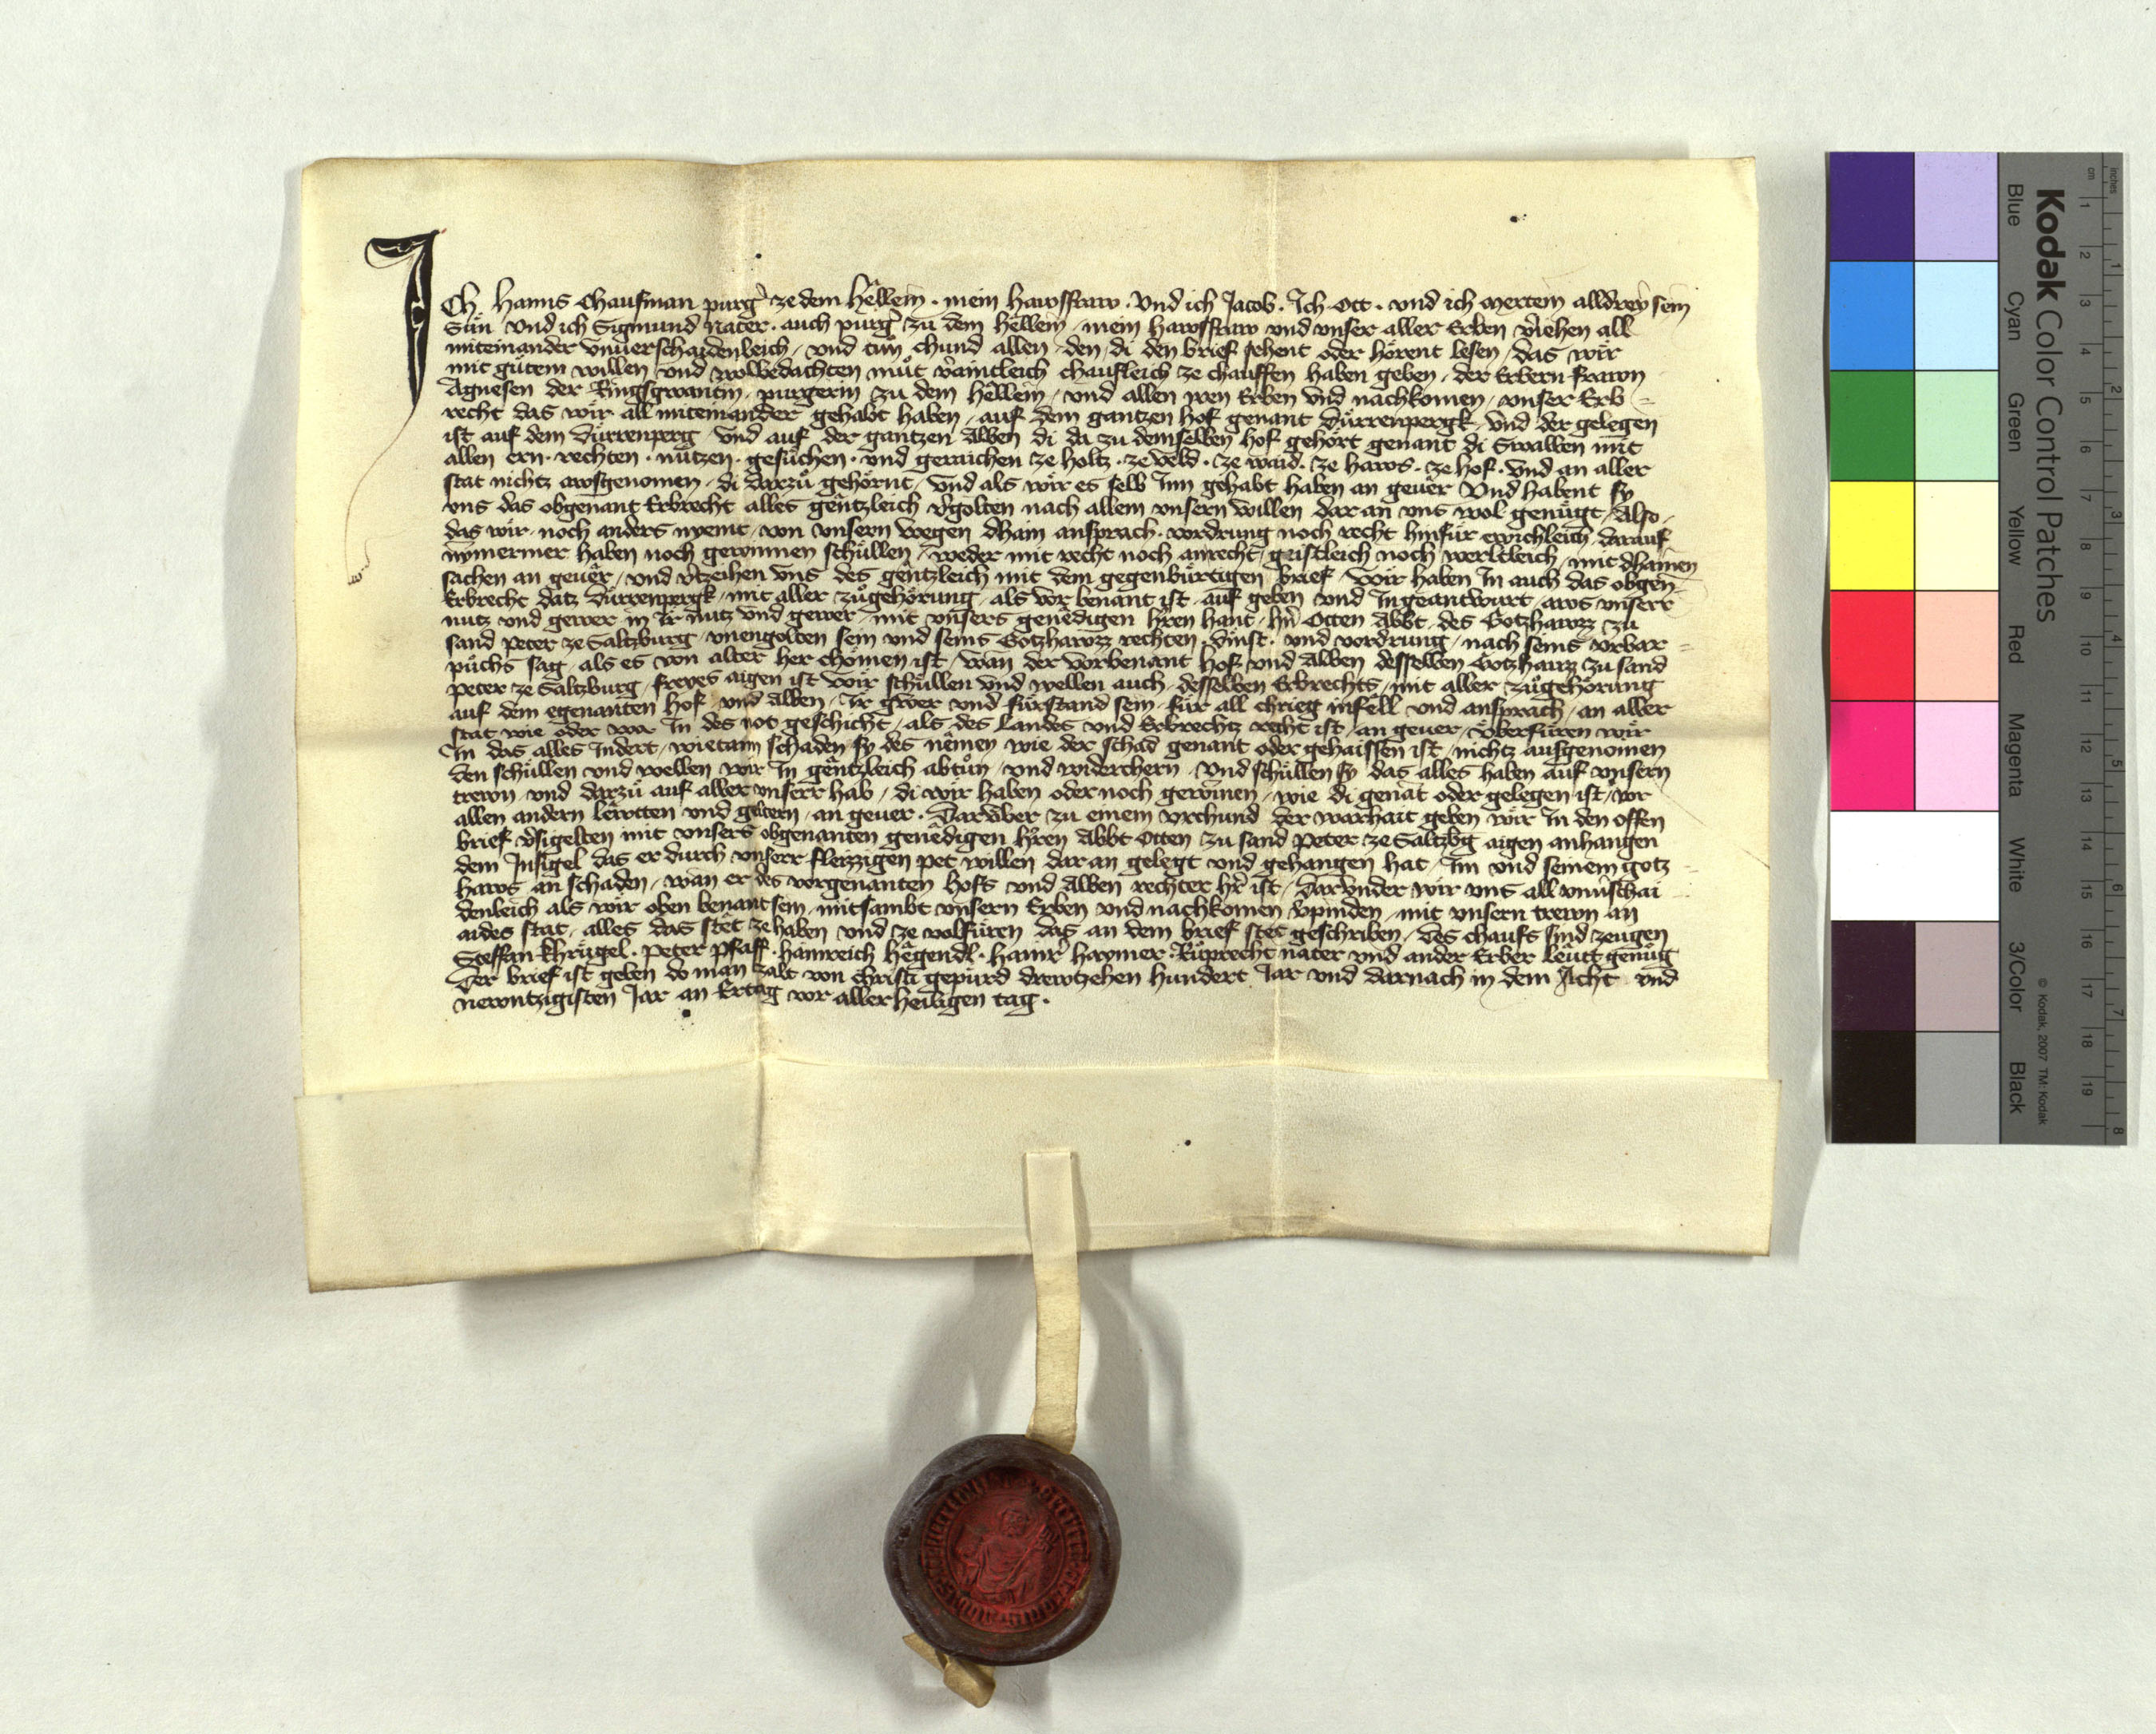 Ich Hanns Chaufman purg̉ ze dem Hêllein · mein hawsfraw · Vnd ich Jacob · Ich Ott · vnd ich Mertein alldrey sein
Sün vnd ich Sigmund Nater · auch purg̉ zu dem Hellein / mein hawsfraw vnd vnser aller Erben v̉iehen all
miteinander vnuerschaidenleich / vnd tun chund allen den / di den brief sehent oder hörent lesen / das wir
mit gůtem willen vnd wolbedachten můt v̉aintleich chaufleich ze chauffen haben geben / der Erbern frawn
Agnesen der Ringsgwantin / purgerin zu dem Hêllein / vnd allen iren Erben vnd nachkomen / vnser Erb=
recht das wir all miteinander gehabt haben / auf dem gantzen hof genant Dürrenpergk / vnd der gelegen
ist auf dem Dürrenperg / vnd auf der gantzen Alben di da zu demselben hof gehört genant di Swalben mit
allen ern · rechten · nützen · gesůchen · vnd geraichen ze holtz · ze veld · ze waid · ze haws · ze hof · vnd an aller
stat nichtz awsgenomen / di darzů gehörnt / vnd als wir es selb Inn gehabt haben an geuêr Vnd habent sy
vns das obgenant Erbrecht alles gêntzleich v̉golten nach allem vnsern willen dar an vns wol genůgt / Also /
das wir noch anders nyemt / von vnsern wegen dhain ansprach · vordrung noch recht hinfür ewichleich darauf
nymermer haben noch gewinnen schüllen / weder mit recht noch anrecht / geistleich noch werltleich / mit dhainen
sachen an geuêr / vnd v̉tzeihen vns des gêntzleich mit dem gegenbürtigen brief / Wir haben In auch das obgen̄
Erbrecht datz Dürrenpergk / mit aller zůgehörung / als vor benant ist / auf geben vnd Ingeantwurt / aws vnserr
nutz vnd gewer in Ir nutz vnd gewer / mit vnsers genêdigen hr̄en hant / hn̄ Otten Abbt / des Gotzhawzz zu
sand Peter ze Saltzburg / vnengolten sein vnd seins Gotzhawzz rechten · dinst · vnd vordrung / nach seins vrbar=
půchs sag / als es von alter her chömen ist / wan der vorbenant hof vnd Alben desselben Gotzhawz zu sand
Peter ze Saltzburg / freyes aigen ist Wir schüllen vnd wellen auch desselben Erbrechts / mit aller zůgehörung
auf dem egenanten hof vnd Alben / Ir gwer vnd fürstand sein / für all chrieg infell vnd ansprach / an aller
stat wie oder wa In des not geschicht / als des Landes vnd Erbrechtz recht ist / an geuer / Vberfüren wir
In das alles Indert / wietann schaden sy des nêmen wie der schad genant oder gehaissen ist / nichtz ausgenomen
den schüllen vnd wellen wir In gêntzleich abtůn / vnd widerchern / vnd schüllen sy das alles haben auf vnsern
trewn / vnd darzů auf aller vnserr hab / di wir haben oder noch gewinen / wie di genāt oder gelegen ist / vor
allen andern lêwtten vnd gêltern / an geuer · Darüber zu einem vrchund der warhait geben wir In den offen
brief v̉sigelten mit vnsers obgenanten genêdigen hr̄en Abbt Otten zu sand Peter ze Saltzb̉g aigen anhangen
dem Insigel das er durch vnserr fleizzigen pet willen dar an gelegt vnd gehangen hat / Im vnd seinem gotz
haws an schaden / wan er des vorgenanten hofs vnd Alben rechter hr̄ ist / Darvnder wir vns all vnuerschai
denleich als wir oben benant sein / mitsambt vnsern Erben vnd nachkomen v̉pinden / mit vnsern trewn an
aides stat / alles das stêt ze haben vnd ze volfüren das an dem brief stet geschriben / Des chaufs sind zeugen
Steffan Chrügel · Peter Pfaff · Hainreich Hêgendl · Hainr̉ Haymer · Rüprecht Nater vnd ander Erber Leütt genůg
Der brief ist geben do man zalt von Christi gepürd drewtzehen hundert Jar vnd darnach in dem Acht vnd
newntzigisten Jar an Ertag vor allerheiligen tag ·
Kodak Color Control Patches
Blue Cyan Green Yellow Red Magenta White 3/Color Black
© Kodak, 2007 TM: Kodak
inches 1 2 3 4 5 6 7 8
cm 1 2 3 4 5 6 7 8 9 10 11 12 13 14 15 16 17 18 19